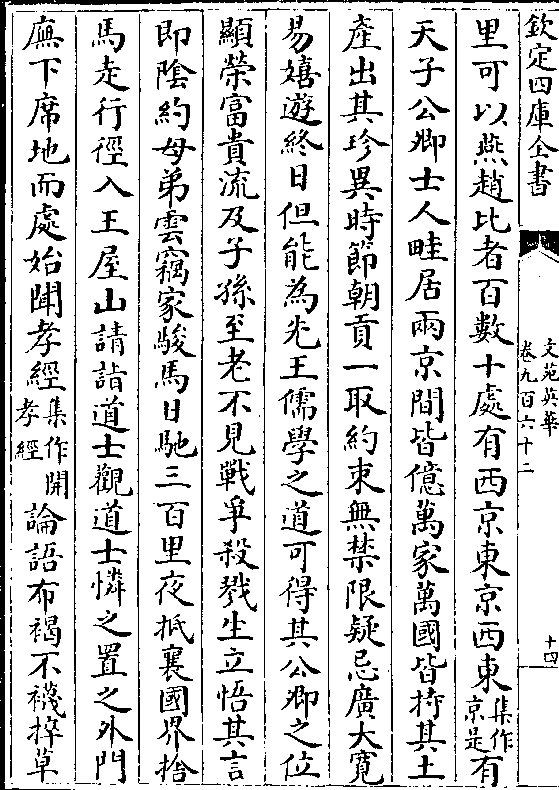 欽定四庫全書
文苑英華
卷九百六十二
十四
里可以燕趙比者百數十處有西京東京西東集作京是有
天子公卿士人畦居兩京間皆億萬家萬國皆持其土
產出其珍異時節朝貢一取約束無禁限疑忌廣大寛
易嬉遊終日但能為先王儒學之道可得其公卿之位
顯榮富貴流及子孫至老不見戰爭殺戮生立悟其言
即陰約母弟雲竊家駿馬日馳三百里夜抵襄國界捨
馬走行徑入王屋山請詣道士觀道士憐之置之外門
廡下席地而處始聞孝經集作開孝經論語布褐不襪捽草